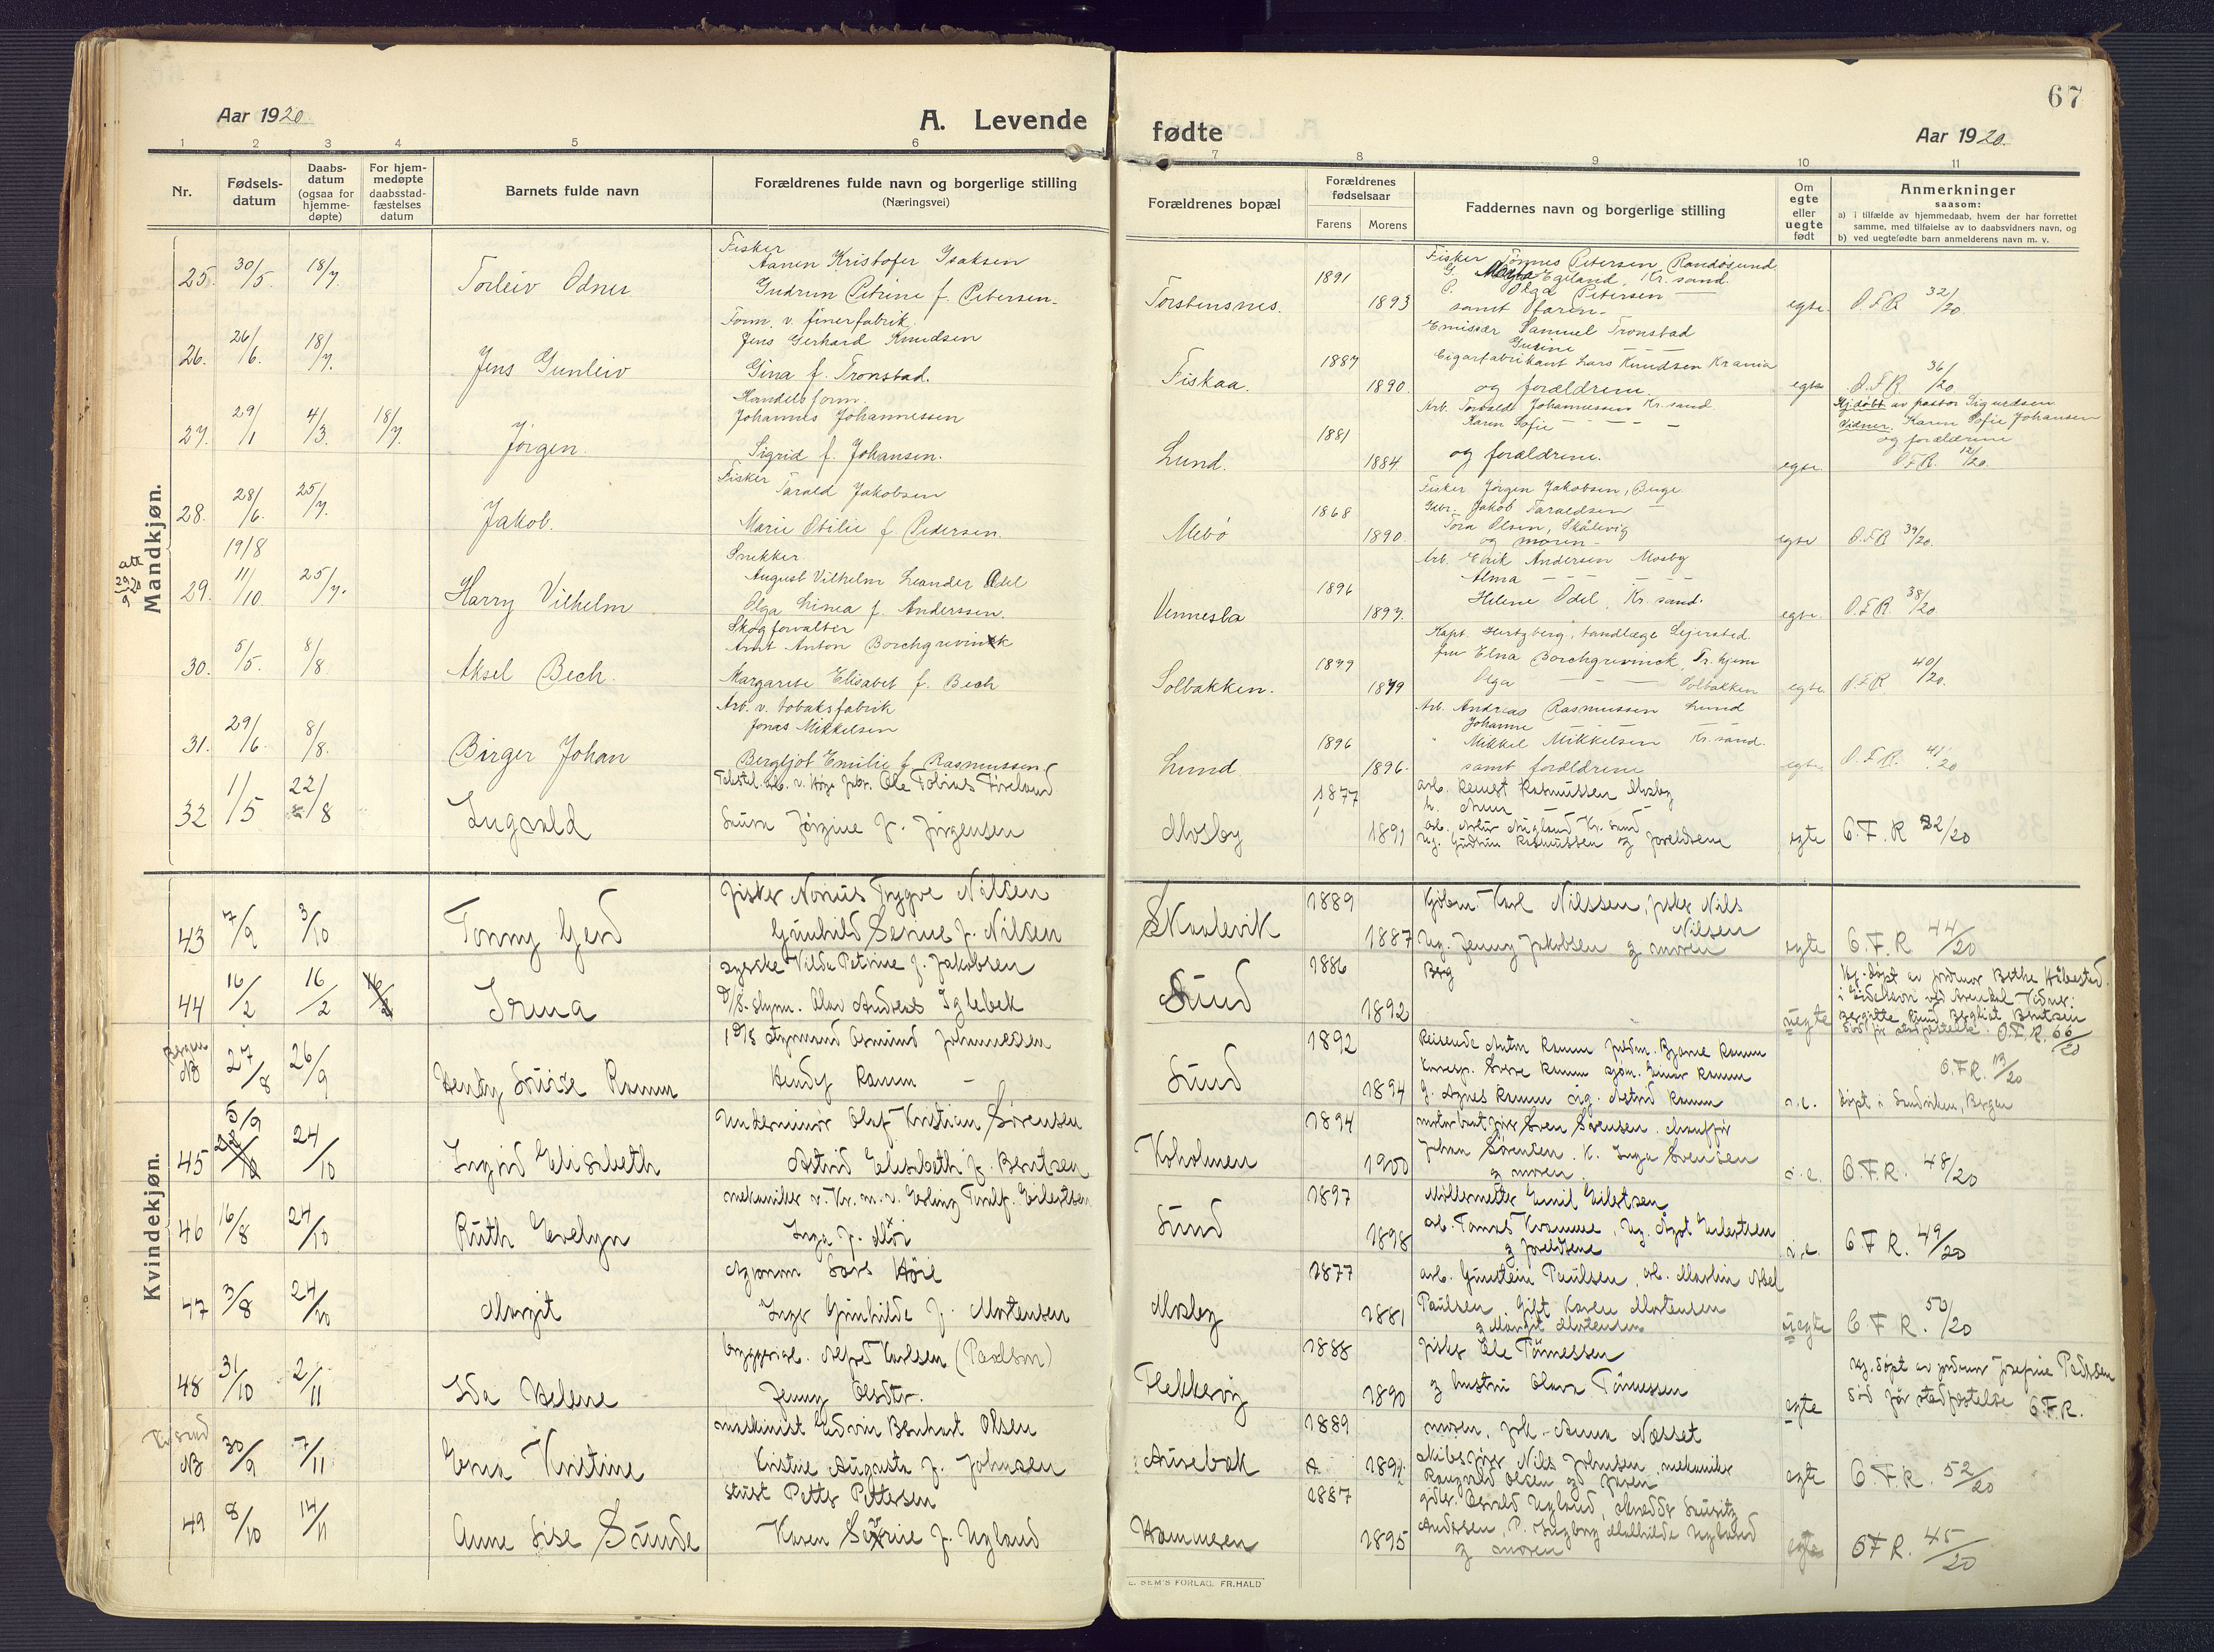 67
Aar 1920.
A. Levende
fødte
Aar 1920.
1 2 3 4 5 6 7 8 9 10 11
Nr.
Fødsels-
datum
Daabs-
datum
(ogsaa for
hjemme-
døpte)
For hjem-
medøpte
daabsstad-
fæstelses
datum
Barnets fulde navn
Forældrenes fulde navn og borgerlige stilling
(Næringsvei)
Forældrenes bopæl
Forældrenes
fødselsaar
Farens
Morens
Faddernes navn og borgerlige stilling
Om
egte
eller
uegte
født
Anmerkninger
saasom:
a) i tilfælde av hjemmedaab, hvem der har forrettet
samme, med tilføielse av to daabsvidners navn, og
b) ved uegtefødte barn anmelderens navn m. v.
Mandkjøn.
25. 30/5. 18/7. Torleiv Odner
Fisker
Aanen Kristofer Isaksen
Gudrun Petrine f. Petersen.
Torstensnes. 1891 1893
Fisker Tönnes Petersen, Randøsund
Egeland, Kr. sand.
Olga Petersen
samt faren.
egte. O.F.R. 32/20.
26. 26/6. 18/7. Jens Gunleiv
Form. v. finerfabrik
Jens Gerhard Knudsen
Gina f. Tronstad.
Fiskaa. 1887 1890.
Emissær Samuel Tronstad
Gurine
Cigarfabrikant Lars Knudsen Krania
og forældrene.
egte O.F.R. 36/20
27. 29/1 4/3. 18/7. Jörgen.
Handelsform.
Johannes Johannessen
Sigrid f. Johansen.
Lund. 1881 1884
Arb. Torvald Johannessen Kr. sand
Karen Sofie
og forældrene.
egte.
Hj.døbt av pastor Sigurdsen
Vidner. Karen Sofie Johansen
og forældrene
O.F.R. 12/20.
28. 28/6. 25/7. Jakob.
Fisker
Tarald Jakobsen
Marie Otilie f. Pedersen.
Mebö 1868 1890.
Fisker Jörgen Jakobsen, Buge
Gdbr. Jakob Taraldsen
Tora Olsen, Skålevig
og moren
egte O.F.R. 39/20.
19/8
29. 11/10 25/7. Harry Vilhelm
Snekker
August Vilhelm Leander Odel
Olga Linea f. Anderssen.
Vennesla 1896 1897.
Arb. Erik Andersen Mosby
Alma
Helene Odel, Kr. sand.
egte. O.F.R. 38/20
30. 5/5. 8/8. Aksel Bech.
Skogforvalter
Arnt Anton Borchgrevink
Margarete Elisabet f. Bech
Solbakken. 1879 1879
Kapt. Hertzberg, tandlæge Lejersted.
fru Elna Borchgrevinck, Tr. hjem
Olga Solbakken
egte. O.F.R. 40/20.
31. 29/6. 8/8. Birger Johan
Arb. v. tobaksfabrik
Jonas Mikkelsen
Bergljot Emilie f. Rasmussen.
Lund 1896 1896.
Arb. Andreas Rasmussen Lund
Johanne
Mikkel Mikkelsen Kr. sand.
samt forældrene
egte. O.F.R. 41/20
32 1/5 22/8 Ingvald
Tekstil. arb. v. Höje fabr. Ole Tobias Föreland
Laura Jörgine f. Jörgensen
Mosby 1877 1891
arb. Rasmussen Mosby
Gudrun Rasmussen og foreldrene
egte O.F.R 22/20
Kvindekjøn.
43 7/9 3/10 Tonny Gerd
fisker Norius Trygve Nilsen
Gunhild Serine f. Nilsen
Skaalevik 1889 1887
Karl Nilssen, fisker Nils
Nilsen
Ug. Jenny Jakobsen og moren
egte O.F.R 44/20
44 16/2 16/2 16/2 Irma
syerske Vilda Petrine f. Jakobsen
D/S. styrm. Olav Andreas Iglebek
Lund 1886 1892
Berg
uegte
Hj. döpt av jordmor Berthe Håbestad
O.F.R. 66/20
Bergen
AB 27/8 26/9 Henny Louise Ramm
Styrmand Asmund Johannessen
Henny Ramm
Lund 1892 1894
Reisende Anton Ramm fuldm. Bjarne Ramm
Korresp. Sverre Ramm sjöm. Einar Ramm
G. Agnes Ramm og Astrid Ramm
O.F.R. 13/20
döpt i Sandviken, Bergen
45 5/9 24/10 Ingrid Elisabeth
Underminör Oluf Kristian Sörensen
Astrid Elisabeth f. Berntsen
Koholmen 1894 1900
motorbaatförer Sven Sörensen
Johan Sörensen. K. Inga Svensen
og moren
O.F.R. 48/20
46 16/8 24/10 Ruth Evelyn
mekaniker v. Kr. m. v. Erling Torolf. Eilertsen
Inga f. Moi
Lund 1897 1898
Möllermester Emil Eilertsen
arb. Tomas Kromme, Ug. Aagot Eilertsen
og foreldrene
O.F.R. 49/20
47 3/8 24/10 Margit
Lars Höie
Inger Gunhilde f. Mortensen
Mosby 1877 1881
arb. Gunstein Paulsen, arb. Martin Abel
Paulsen, Gift Karen Mortensen
og Margit Mortensen
uegte O.F.R. 50/20
48 31/10 2/11 Ida Helene
bryggeriarb. Alfred Karlsen (Paulsen)
Jenny Olsdtr.
Flekkeröy 1888 1890
fisker Ole Tönnessen
og hustru Olava Tönnessen
egte
Hj. döpt av jordmor Josefine Pedersen
död för stadfestelse O.F.R.
Kr.sand
AB 30/9 7/11 Erna Kristine
maskinist Edvin Bernhart Olsen
Kristine Augusta f. Johnsen
Aurebæk 1889 1892
moren, frk. Anna Næsset
Skibsförer Nils Johnsen, mekaniker
Rangvald Olsen og faren
egte O.F.R. 52/20
49 8/10 14/11 Anne Lise Sunde
Petter Pettersen
Karen Serine f. Ugland
Hammeren 1887 1895
Osvald Ugland,
Andersen, P. Ingborg Mathilde Ugland
og moren
egte OFR. 45/20
E. SEM'S FORLAG, FR.HALD